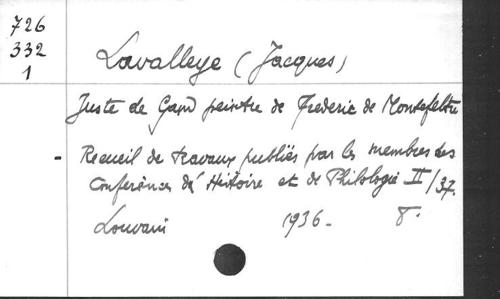 726
332
1
Lavalleye (Jacques)
Juste de Gand peintre de Frederic de Montefeltre
- Recueil de travaux publiés par les membres des
Conférences d'Histoire et de Philologie II/37.
Louvain 1936. 8°.